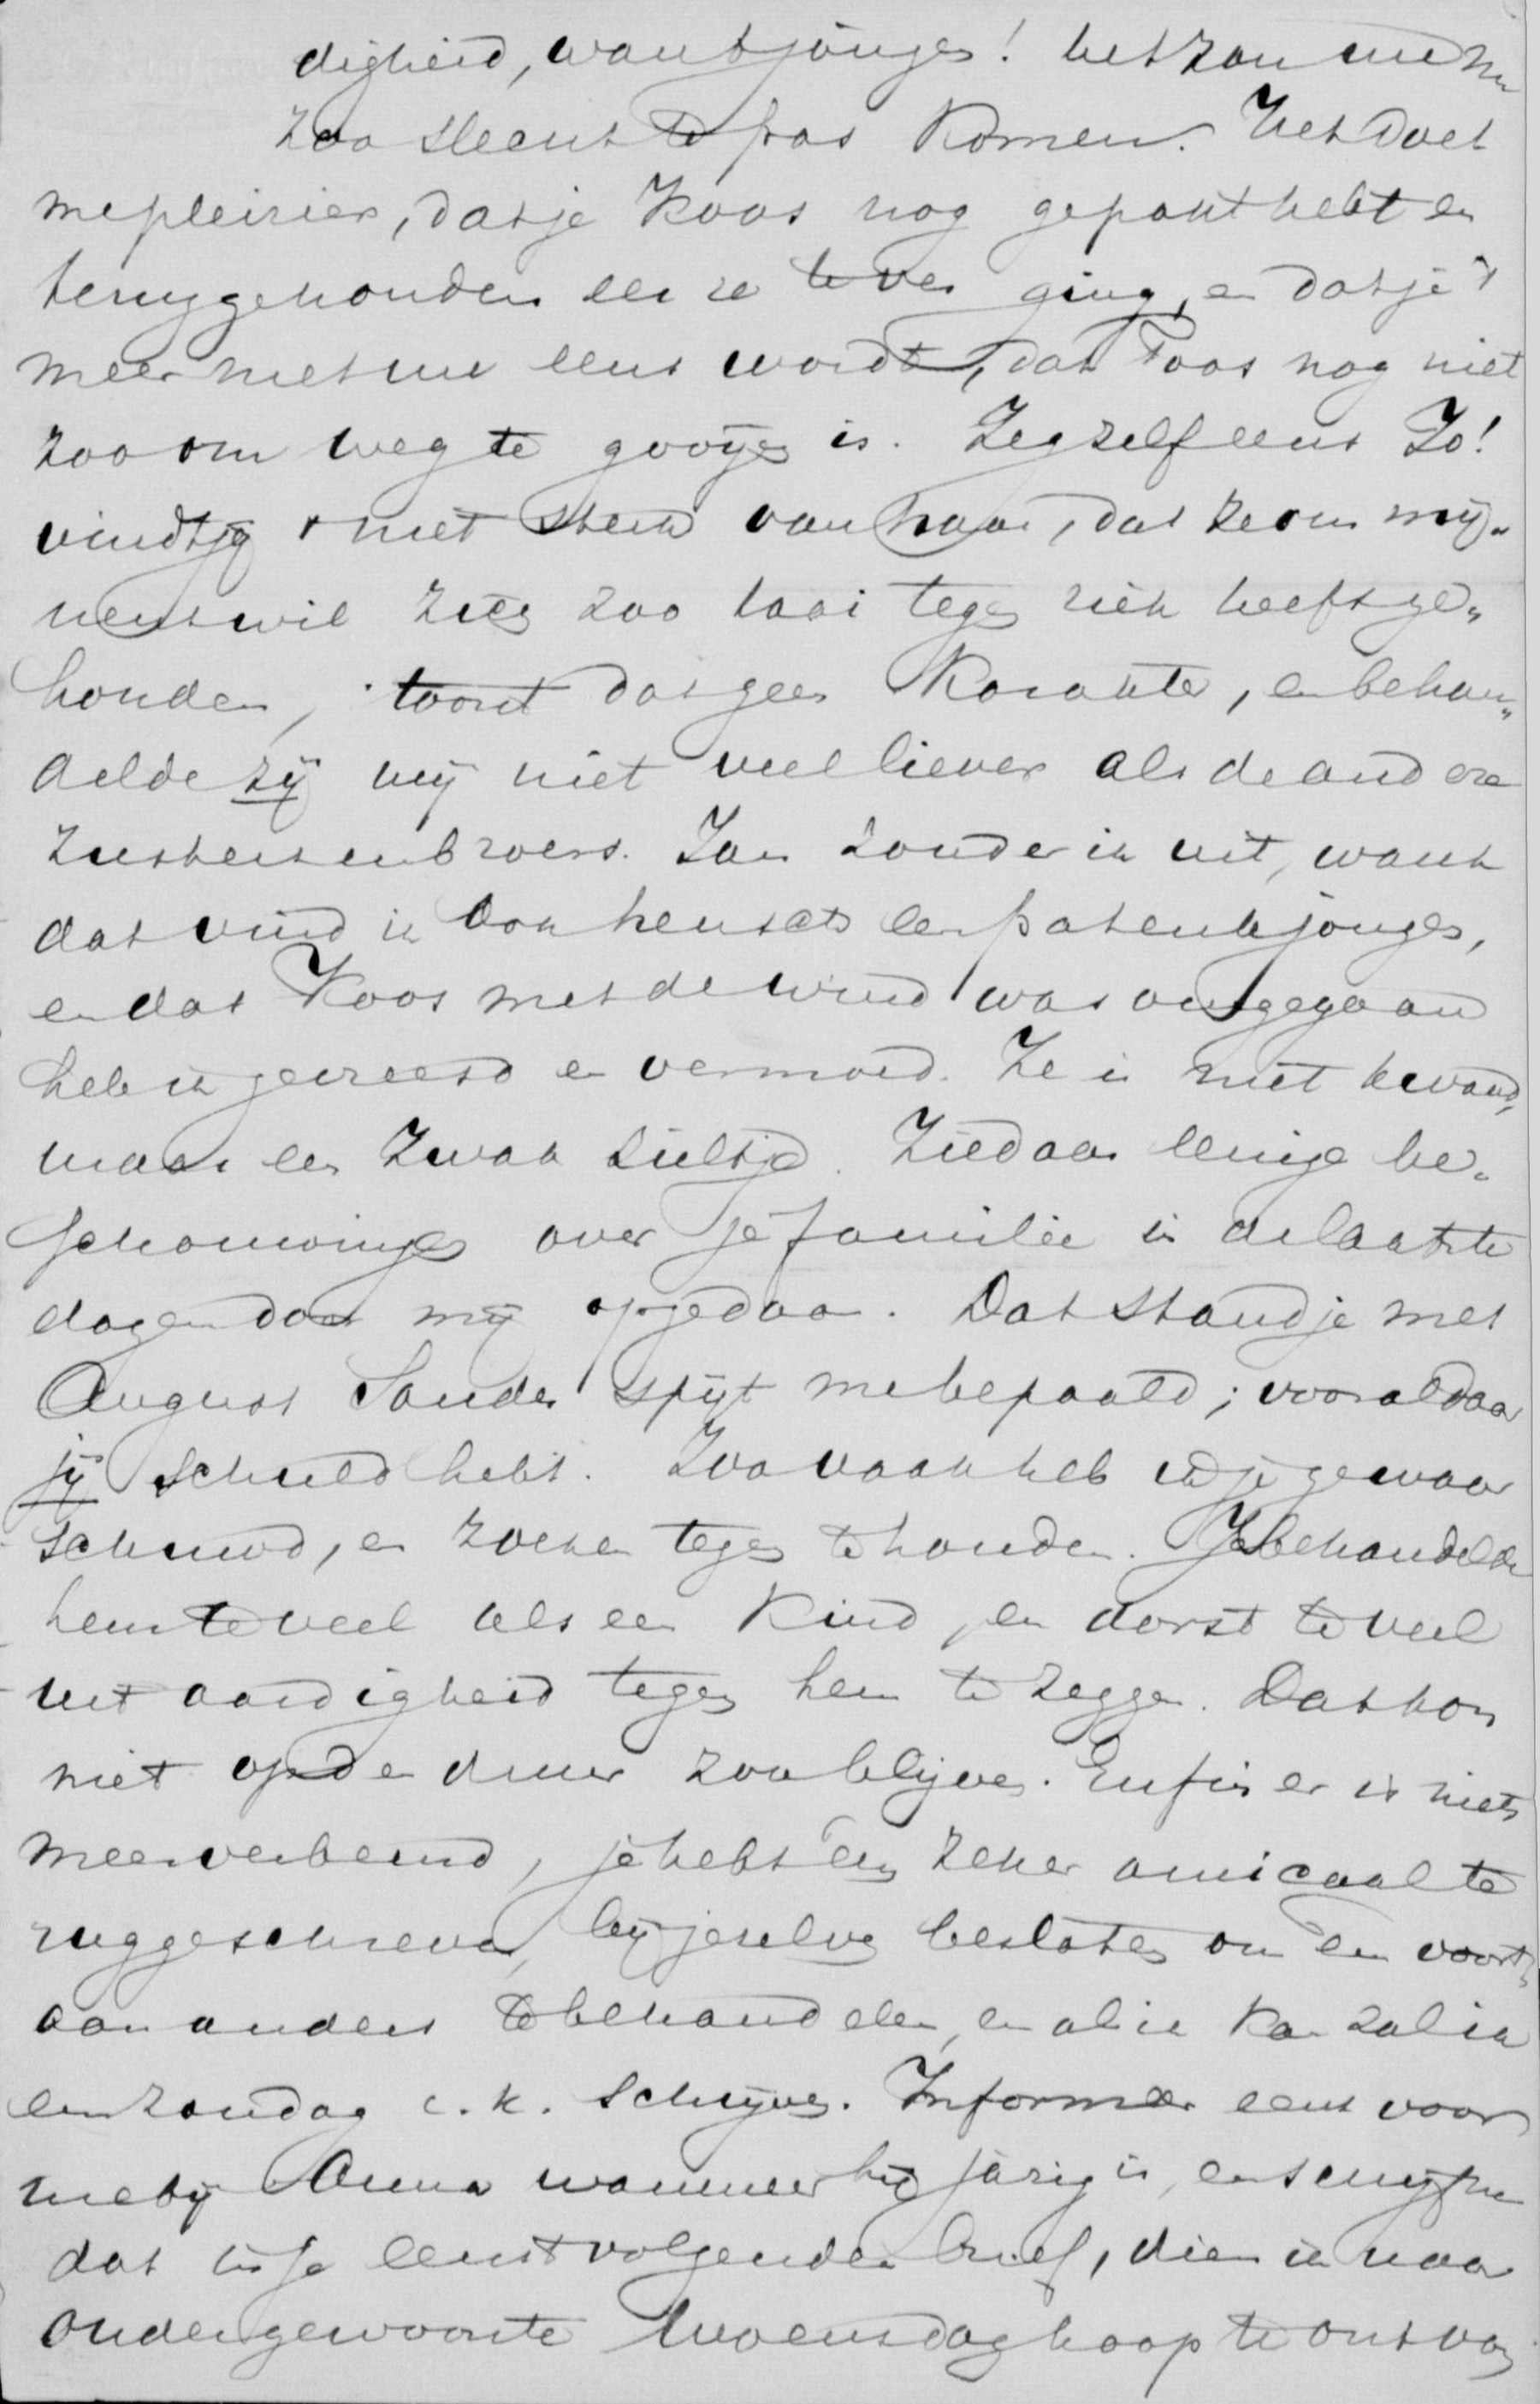 digheid, want jonges! het zou me nu
zoo slecht te pas komen. Het doet
me pleizier, dat je Koos nog gepakt hebt en
teruggehouden eer ze te ver ging, en dat je 't
meer met me eens wordt, dat Toos nog niet
zoo om weg te gooije is. Zeg zelf eens Jo!
vindt je 't niet sterk van haar, dat ze om mij„
nentwil zich zoo taai tegen zich heeft ge„
houden, toont dat geen karakter, en behan„
delde zij mij niet veel liever als de andere
zusters en broers. Jan zonder ik uit, want
dat vind ik ook heusch een patente jongen,
en dat Koos met de wind was omgegaan
heb ik gevreesd en vermoed. Ze is niet kwaad,
maar een zwak zieltje. Ziedaar eenige be„
schouwingen over je familie in de laatste
dagen door mij opgedaan. Dat standje met
August Sander spijt me bepaald; vooral daar
jij schuld hebt. Zoo vaak heb ik je gewaar
schuwd, en zoeken tegen te houden. Je behandelde
hem te veel als een kind, en dorst te veel
uit aardigheid tegen hem te zeggen. Dat kon
niet op den duur zoo blijven. Enfin er is niets
meer verbeurd, je hebt em zeker amicaal te
ruggeschreven, bij jezelve besloten om em voort„
aan anders te behandelen, en als ik kan zal ik
em zondag e.k. schrijven. Informeer eens voor
me bij Anna wanneer hij jarig is, en schrijf me
dat in je eerstvolgenden brief, dien ik naar
oudergewoonte Woensdag hoop te ontvan